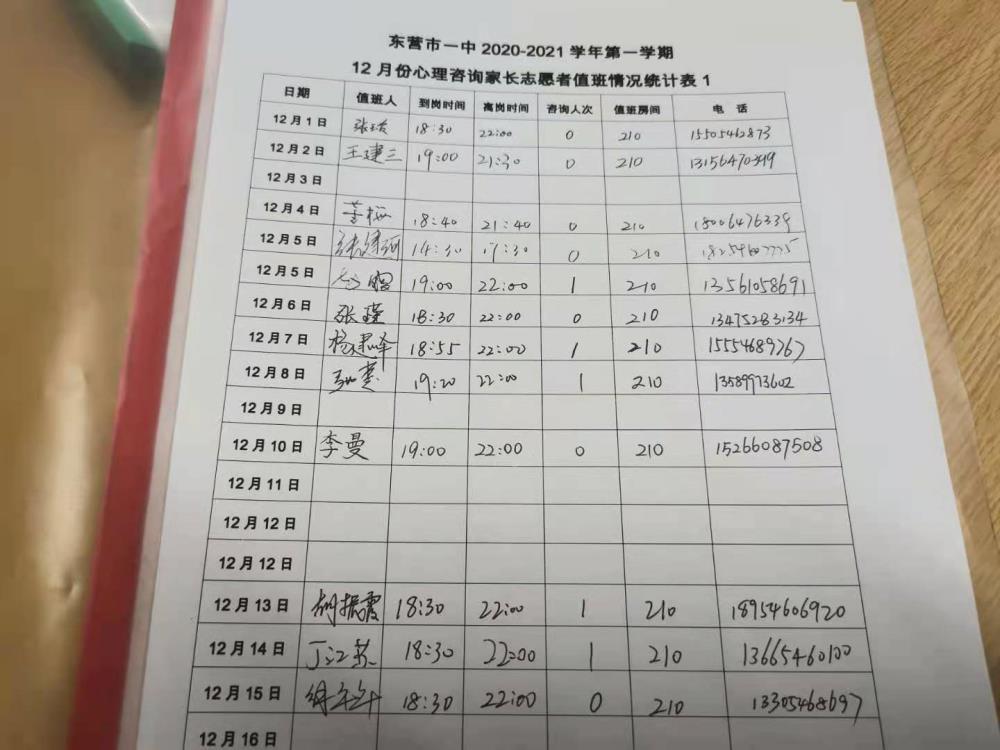 东营市一中 2020-2021 学年第一学期
12 月份心理咨询家长志愿者值班情况统计表 1
日期 值班人 到岗时间 离岗时间 咨询人次 值班房间 电 话
12 月 1 日 18:30 22:00 0 210 15505462873
12 月 2 日 王建三 19:00 21:30 0 210
12 月 3 日
12 月 4 日 18:40 21:40 0 210 18006476339
12 月 5 日 14:30 17:30 0 210
12 月 5 日 19:00 22:00 1 210 13561058691
12 月 6 日 张瑾 18:30 22:00 0 210 13475283134
12 月 7 日 18:55 22:00 1 210 15554689767
12 月 8 日 19:20 22:00 1 210 13589973602
12 月 9 日
12 月 10 日 李曼 19:00 22:00 0 210 15266087508
12 月 11 日
12 月 12 日
12 月 12 日
12 月 13 日 胡振霞 18:30 22:00 1 210 18954606920
12 月 14 日 丁江燕 18:30 22:00 1 210 13665460100
12 月 15 日 18:30 22:00 0 210 13305468697
12 月 16 日